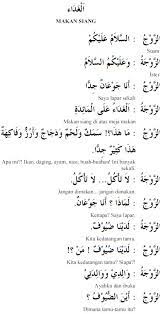 اَلْغَدَاءُ
MAKAN SIANG
اَلزَّوْجُ : اَلسَّلَامُ عَلَيْكُمْ
Suami
اَلزَّوْجَةُ : وَعَلَيْكُمُ السَّلَامُ
Ister
اَلزَّوْجُ : أَنَا جَوْعَانٌ جِدًّا
Saya lapar sekali
اَلزَّوْجَةُ : اَلْغَدَاءُ عَلَى الْمَائِدَةِ
Makan siang di atas meja makan
اَلزَّوْجُ : مَا هَذَا؟! سَمَكٌ وَلَحْمٌ وَدَجَاجٌ وَأَرُزٌّ وَفَاكِهَةٌ
هَذَا كَثِيْرٌ جِدًّا
Apa ini? Ikan, daging, ayam, nasi, buah-buahan! Ini banyak
sekali
اَلزَّوْجَةُ : لَا تَأْكُلْ... لَا تَأْكُلْ
Jangan dimakan... jangan dimakan
اَلزَّوْجُ : لِمَاذَا ؟ أَنَا جَوْعَانٌ
Kenapa? Saya lapar
اَلزَّوْجَةُ : لَدَيْنَا ضُيُوْفٌ
Kita kedatangan tamu
اَلزَّوْجُ : لَدَيْنَا ضُيُوْفٌ ! مَنْ ؟!
Kita kedatangan tamu! Siapa?!
اَلزَّوْجَةُ : وَالِدِيْ وَوَالِدَتِيْ
Ayahku dan ibuku
اَلزَّوْجُ : أَيْنَ الضُّيُوْفُ ؟
Dimana tamu-tamu itu?